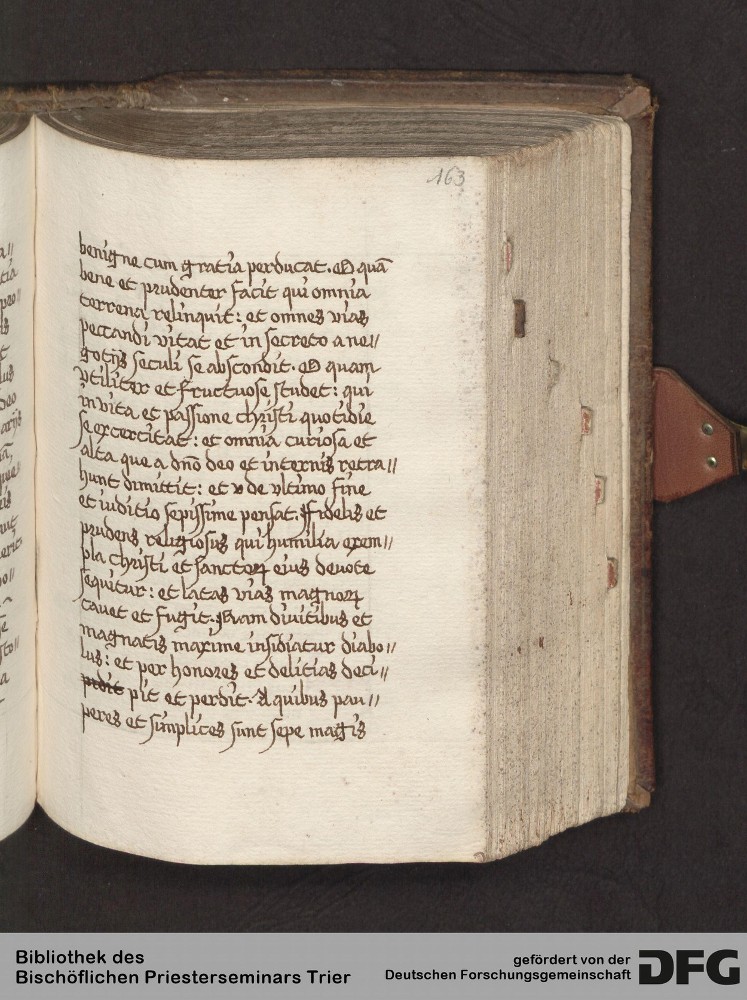 163
benigne cum gratia perducat. O quā
bene et prudenter facit qui omnia
terrena relinquit: et omnes vias
peccandi vitat et in secreto a ne//
gotijs seculi se abscondit. O quam
vtiliter et fructuose studet: qui
in vita et passione christi quotidie
se exercitat: et omnia curiosa et
alta que a dnō deo et internis retra//
hunt dimittit: et de vltimo fine
et iuditio sepissime pensat. Fidelis et
prudens religiosus qui humilia exem//
pla christi et sanctoꝝ eius deuote
sequitur: et latas vias magnoꝝ
cauet et fugit. Nam diuitibus et
magnatis maxime insidiatur diabo//
lus: et per honores et delitias deci//
pit et perdit. A quibus pau//
peres et simplices sunt sepe magis
Bibliothek des
Bischöflichen Priesterseminars Trier
gefördert von der
Deutschen Forschungsgemeinschaft
DFG